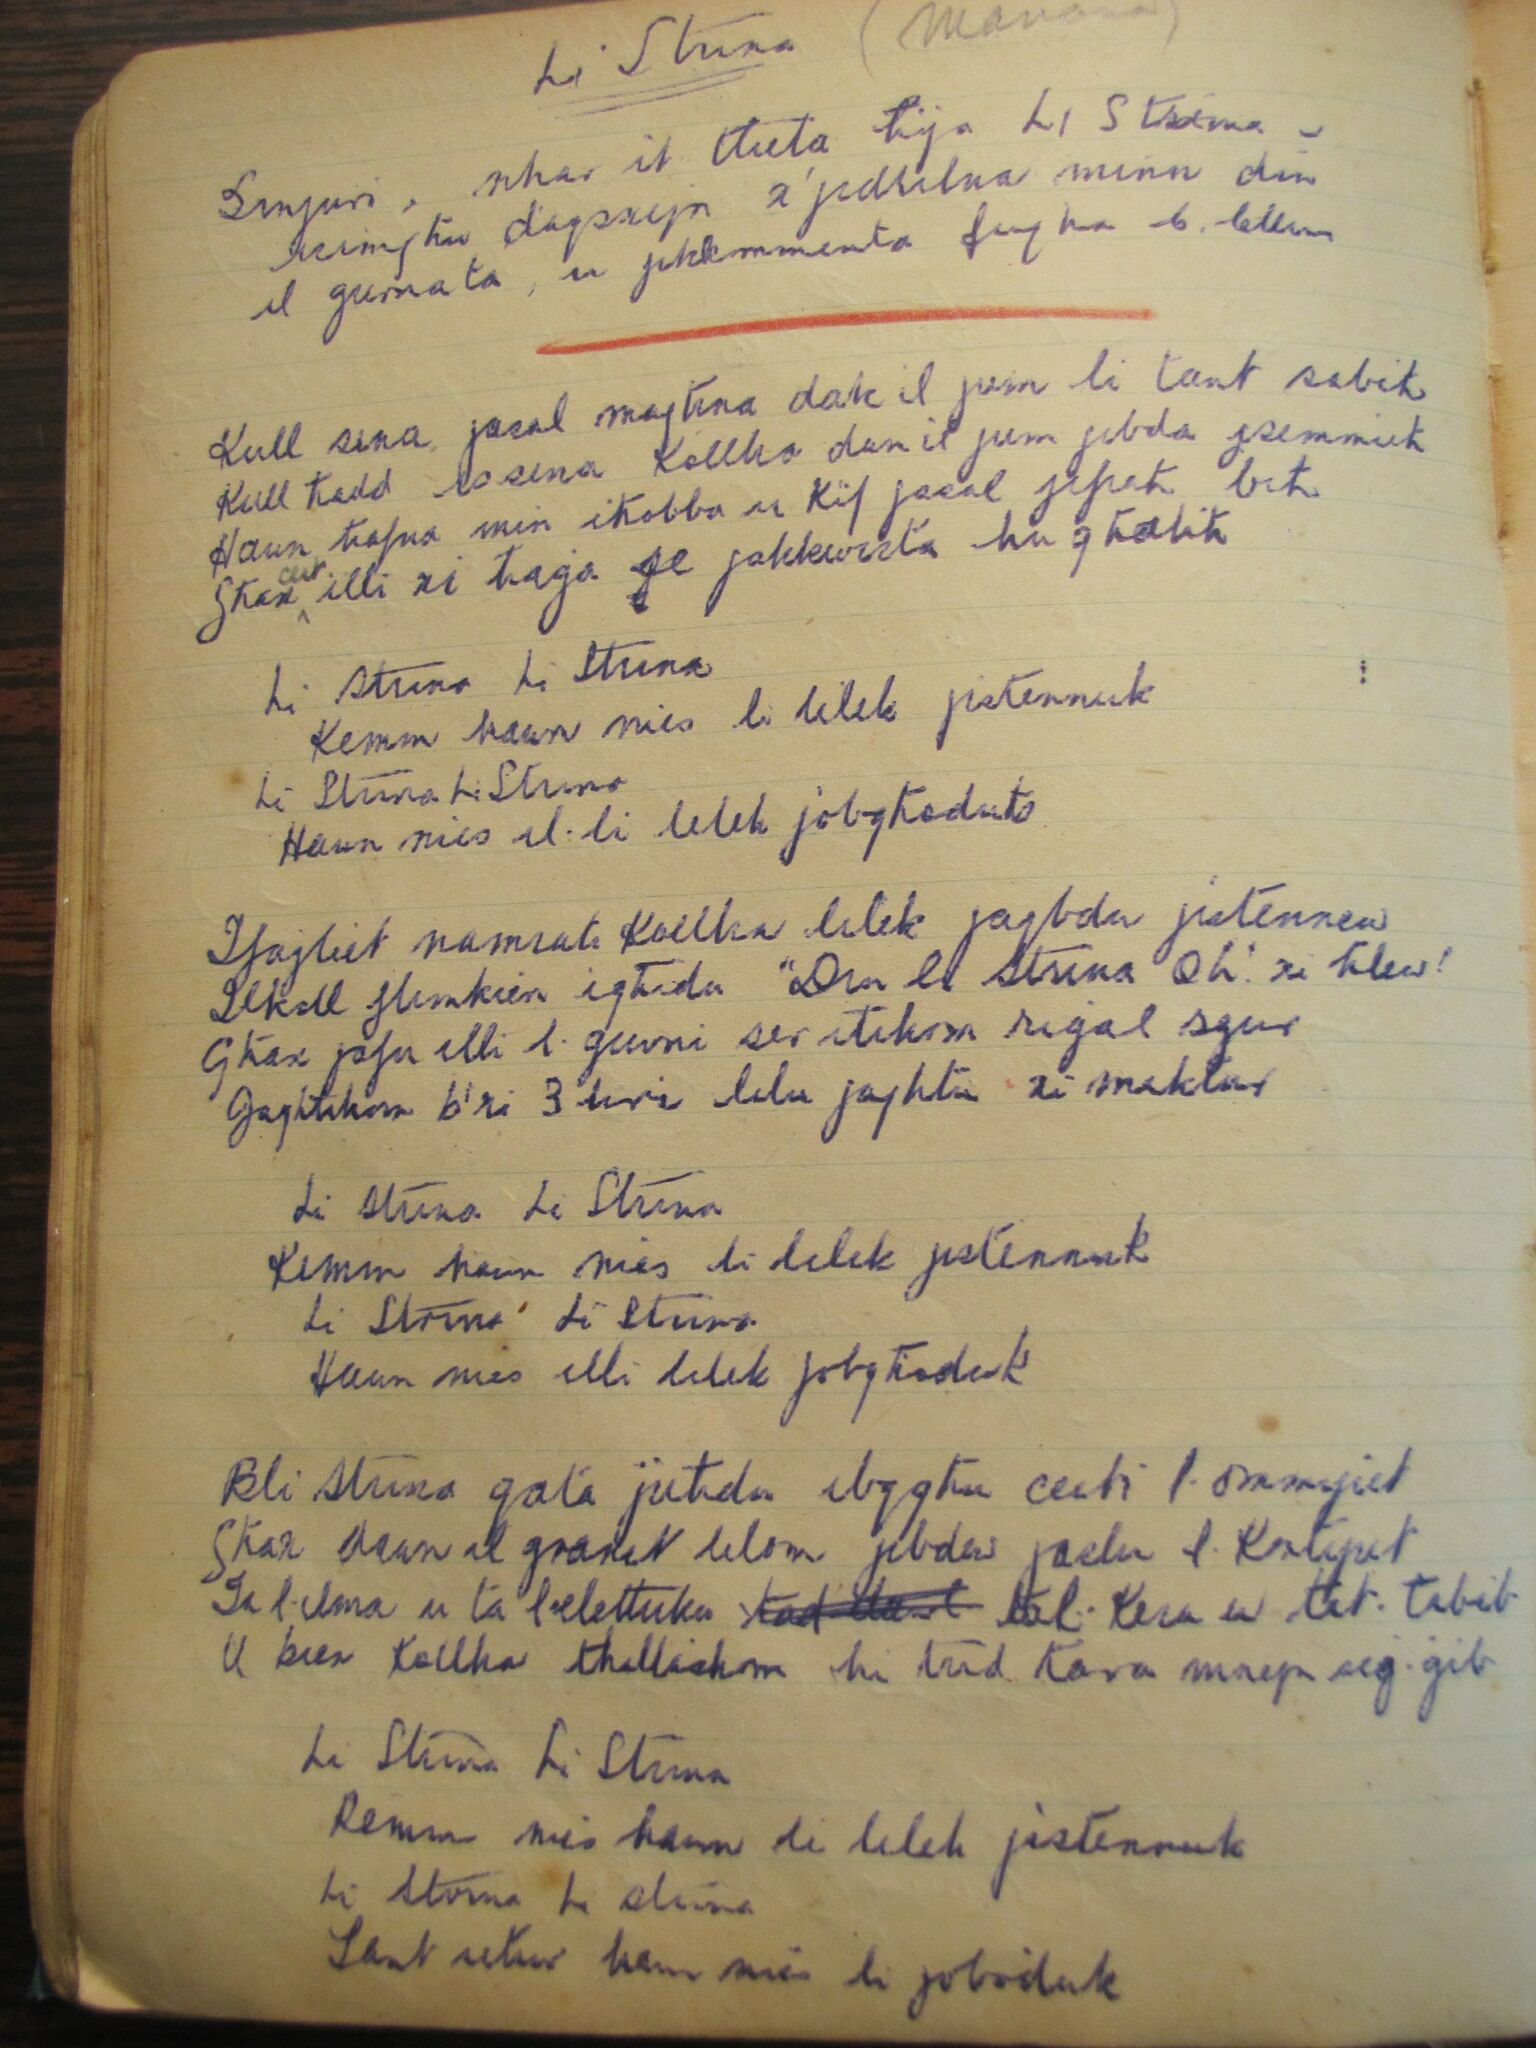 Li Struna (Manana)
Sinjuri, nhar it tieta tija Li Struna -
dagsxejn x'jedhilna minn din
il gurnata, u jikkummenta fuqha b.
Kull sena jasal magtna dak il jum li tant sabih
Kull hadd issena Kollha dan il jum jibda jsemmieh
Haun hafna min ihobba u Kif jasal jifrah bih
Ghax cert illi xi haga se jakkwista hu ghalih
Li Struna Li Struna
Kemm haun nies li lilek jistennuk
Li Struna Li Struna
Haun nies il-li lilek jobghoduk
Tfajliet namrati Kollha lilek jagbdu jistennew
Ilkoll flimkien ighidu "Din li Struna Oh! xi hlew!
Ghax jafu illi l-guvni ser itihom rigal sgur
Jaghtihom b'xi 3 liri lilu jaghtu xi maktur
Li Struna Li Struna
Kemm haun nies li lilek jistennuk
Li Struna Li Struna
Haun nies illi lilek jobghoduk
Bli Struna qata jiehdu ibgghu certi l-ommijiet
Ghax daun il granet lilom jibdew jaslu l-Kontijiet
Ta l-ilma u ta l-elettriku tal-Kera u tat-tabib
U biex Kollha thallashom hi trid tara mnejn iggib
Li Struna Li Struna
Kemm nies haun li lilek jistennuk
Li Struna Li Struna
Tant iehor haun nies li joboduk